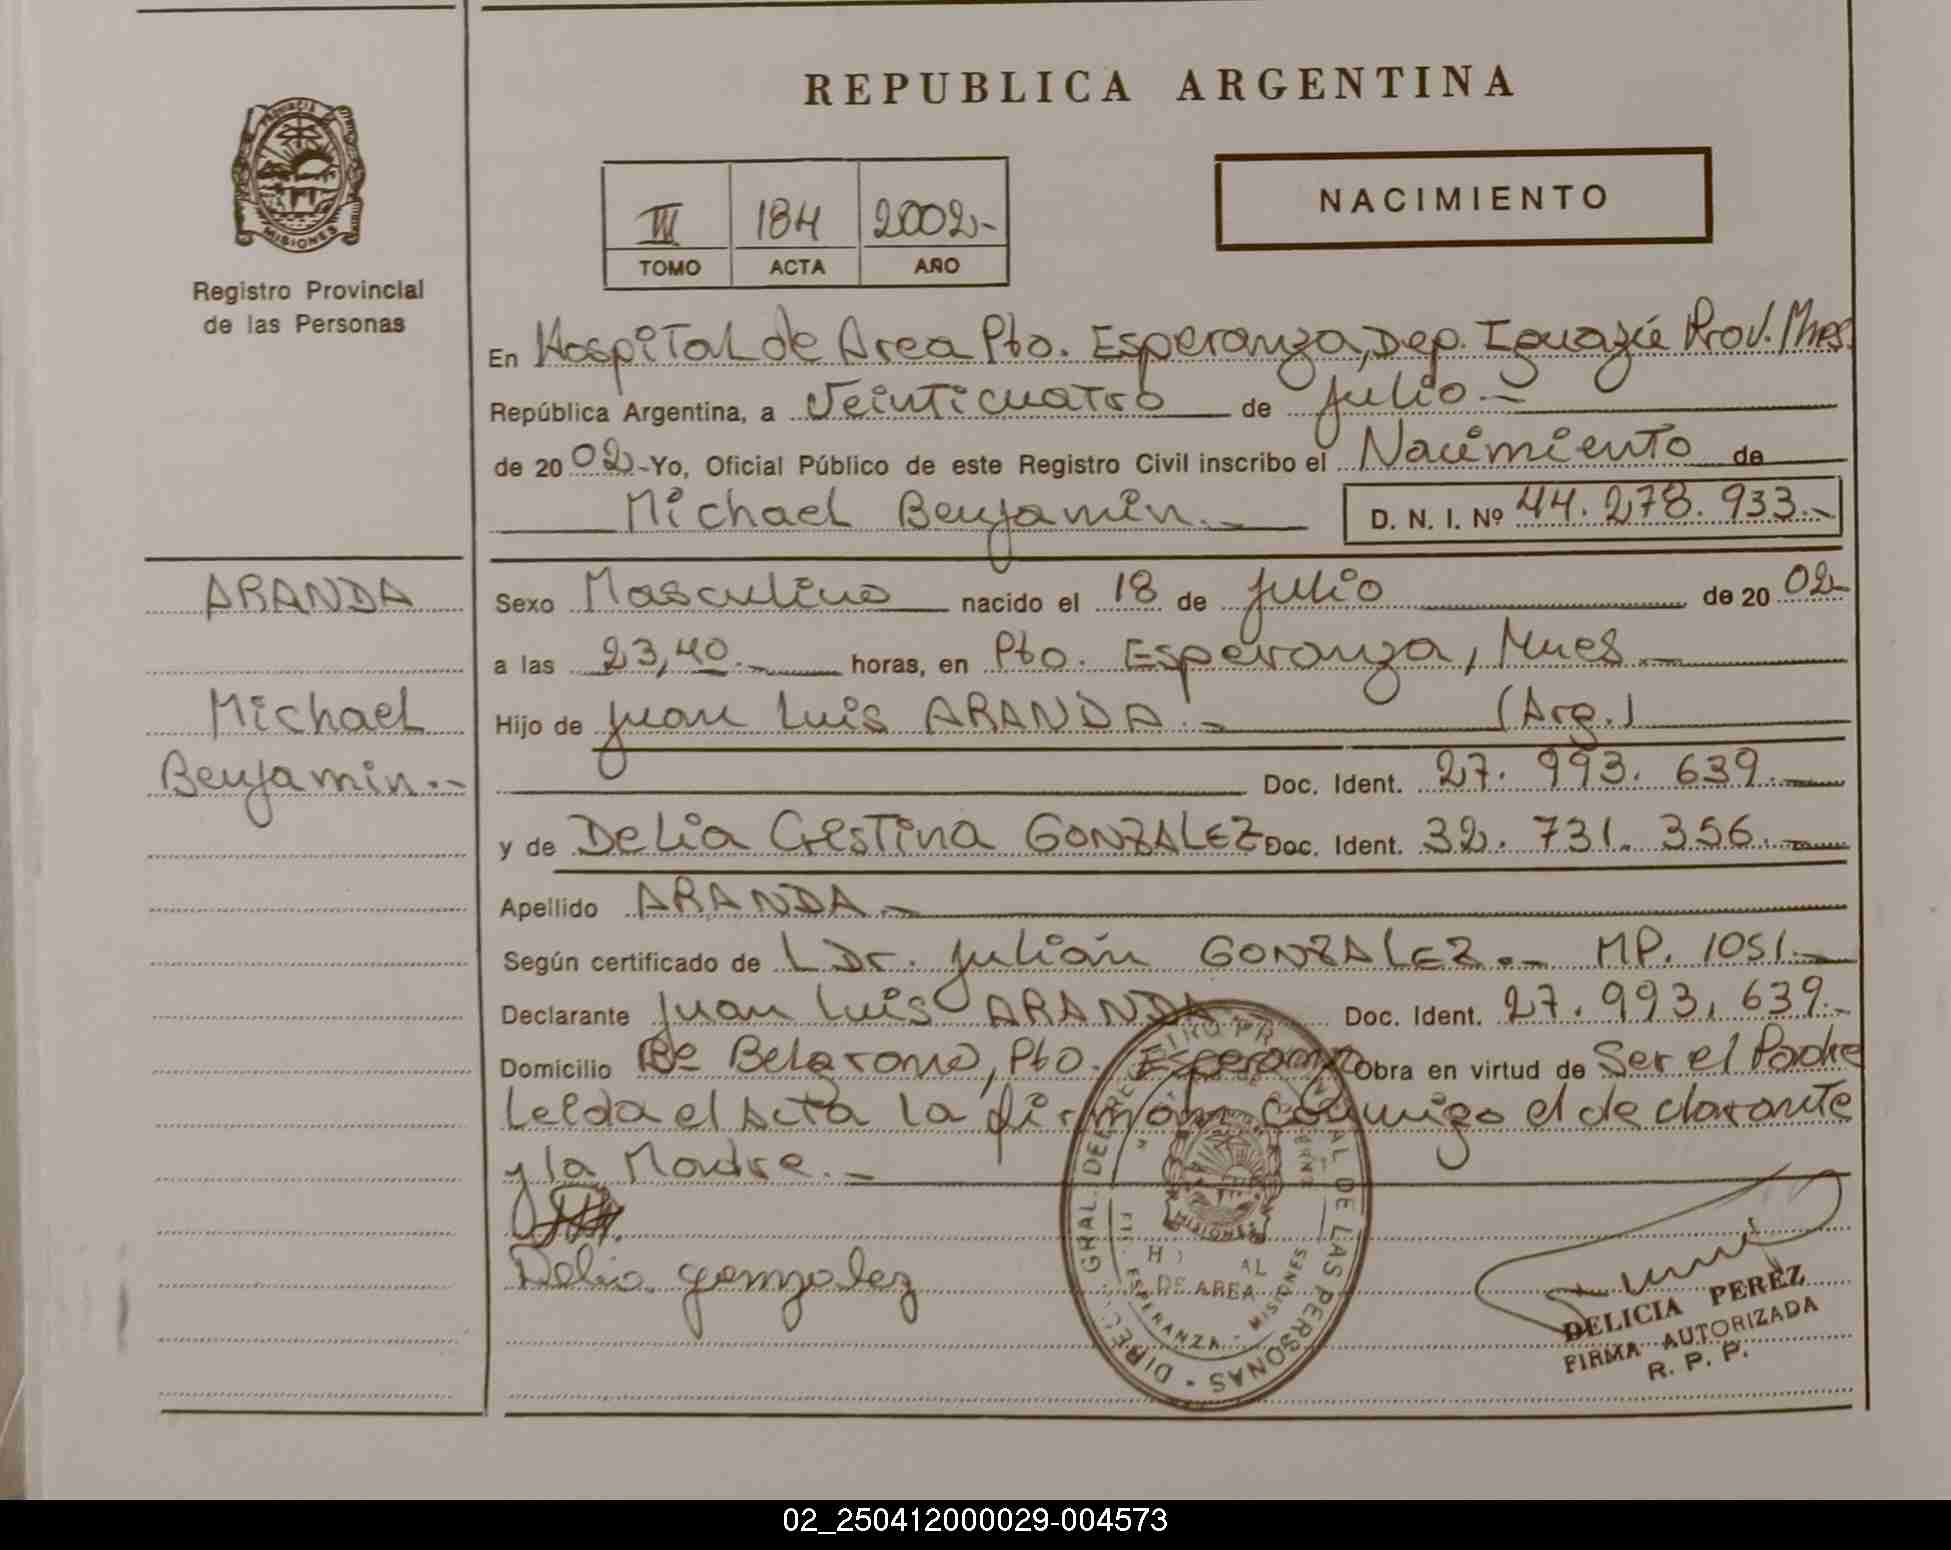 REPUBLICA ARGENTINA
NACIMIENTO
III 184 2002.-
TOMO ACTA AÑO
PROVINCIA
MISIONES
Registro Provincial
de las Personas
En Hospital de Area Pto. Esperanza, Dep. Iguazú Prov. Mnes.
República Argentina, a Veinticuatro de Julio.-
de 2002-Yo, Oficial Público de este Registro Civil inscribo el Nacimiento de
Michael Benjamin.- D. N. I. Nº 44.278.933.-
ARANDA
Michael
Benjamin.-
Sexo Masculino nacido el 18 de Julio de 2002-
a las 23,40.- horas, en Pto. Esperanza, Mnes.-
Hijo de Juan Luis ARANDA.- (Arg.)
Doc. Ident. 27.993.639.-
y de Delia Cristina GONZALEZ Doc. Ident. 32.731.356.-
Apellido ARANDA.-
Según certificado de L Dr. Julián GONZALEZ.- MP. 1051.-
Declarante Juan Luis ARANDA Doc. Ident. 27.993,639.-
Domicilio Bº Belgrano, Pto. Esperanza Obra en virtud de Ser el Padre
Leida el Acta la firman conmigo el declarante
y la Madre.-
Delia gonzalez
DE LAS PERSONAS
MISIONES
DE AREA
ESPERANZA - MISIONES
DELICIA PEREZ
FIRMA AUTORIZADA
R. P. P.
02_250412000029-004573